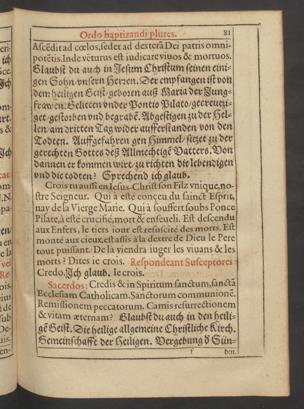 Ordo baptizandi plures. 81
Ascēdit ad cœlos, sedet ad dexterā Dei patris omni-
potētis. Inde vēturus est iudicare viuos & mortuos.
Glaubst du auch in Jesum Christum seinen eini-
gen Sohn vnsern Herren. Der empfangen ist von
dem heiligen Geist geboren auß Maria der Jung-
frawen. Gelitten vnder Pontio Pilato / gecreuzi-
get / gestorben vnd begrabē. Abgestigen zu der Hel-
len / am dritten Tag wider aufferstanden von den
Todten. Auffgefahren gen Himmel / sitzet zu der
gerechten Gottes deß Allmechtigē Vatters. Von
dannen er kommen wirt / zu richten die lebendigen
vnd die todten? Sprechend ich glaub.
Crois tu aussi en Iesus-Christ son Filz vnique, no-
stre Seigneur. Qui à esté conçeu du sainct Esprit,
nay de la Vierge Marie. Qui à souffert soubs Ponce
Pilate, à esté crucifié, mort & enseueli. Est descendu
aux Enfers, le tiers iour est resuscité des morts. Est
monté aux cieux, est assis à la dextre de Dieu le Pere
tout puissant. De la viendra iuger les viuans & les
morts? Dites ie crois. Respondeant Susceptores:
Credo. Ich glaub. Ie crois.
Sacerdos: Credis & in Spiritum sanctum, sanctā
Ecclesiam Catholicam. Sanctorum communionē.
Remissionem peccatorum. Carnis resurrectionem
& vitam æternam? Glaubst du auch in den heili-
gē Geist. Die heilige allgemeine Christliche Kirch.
Gemeinschafft der Heiligen. Vergebung d̄ Sün-
f den.